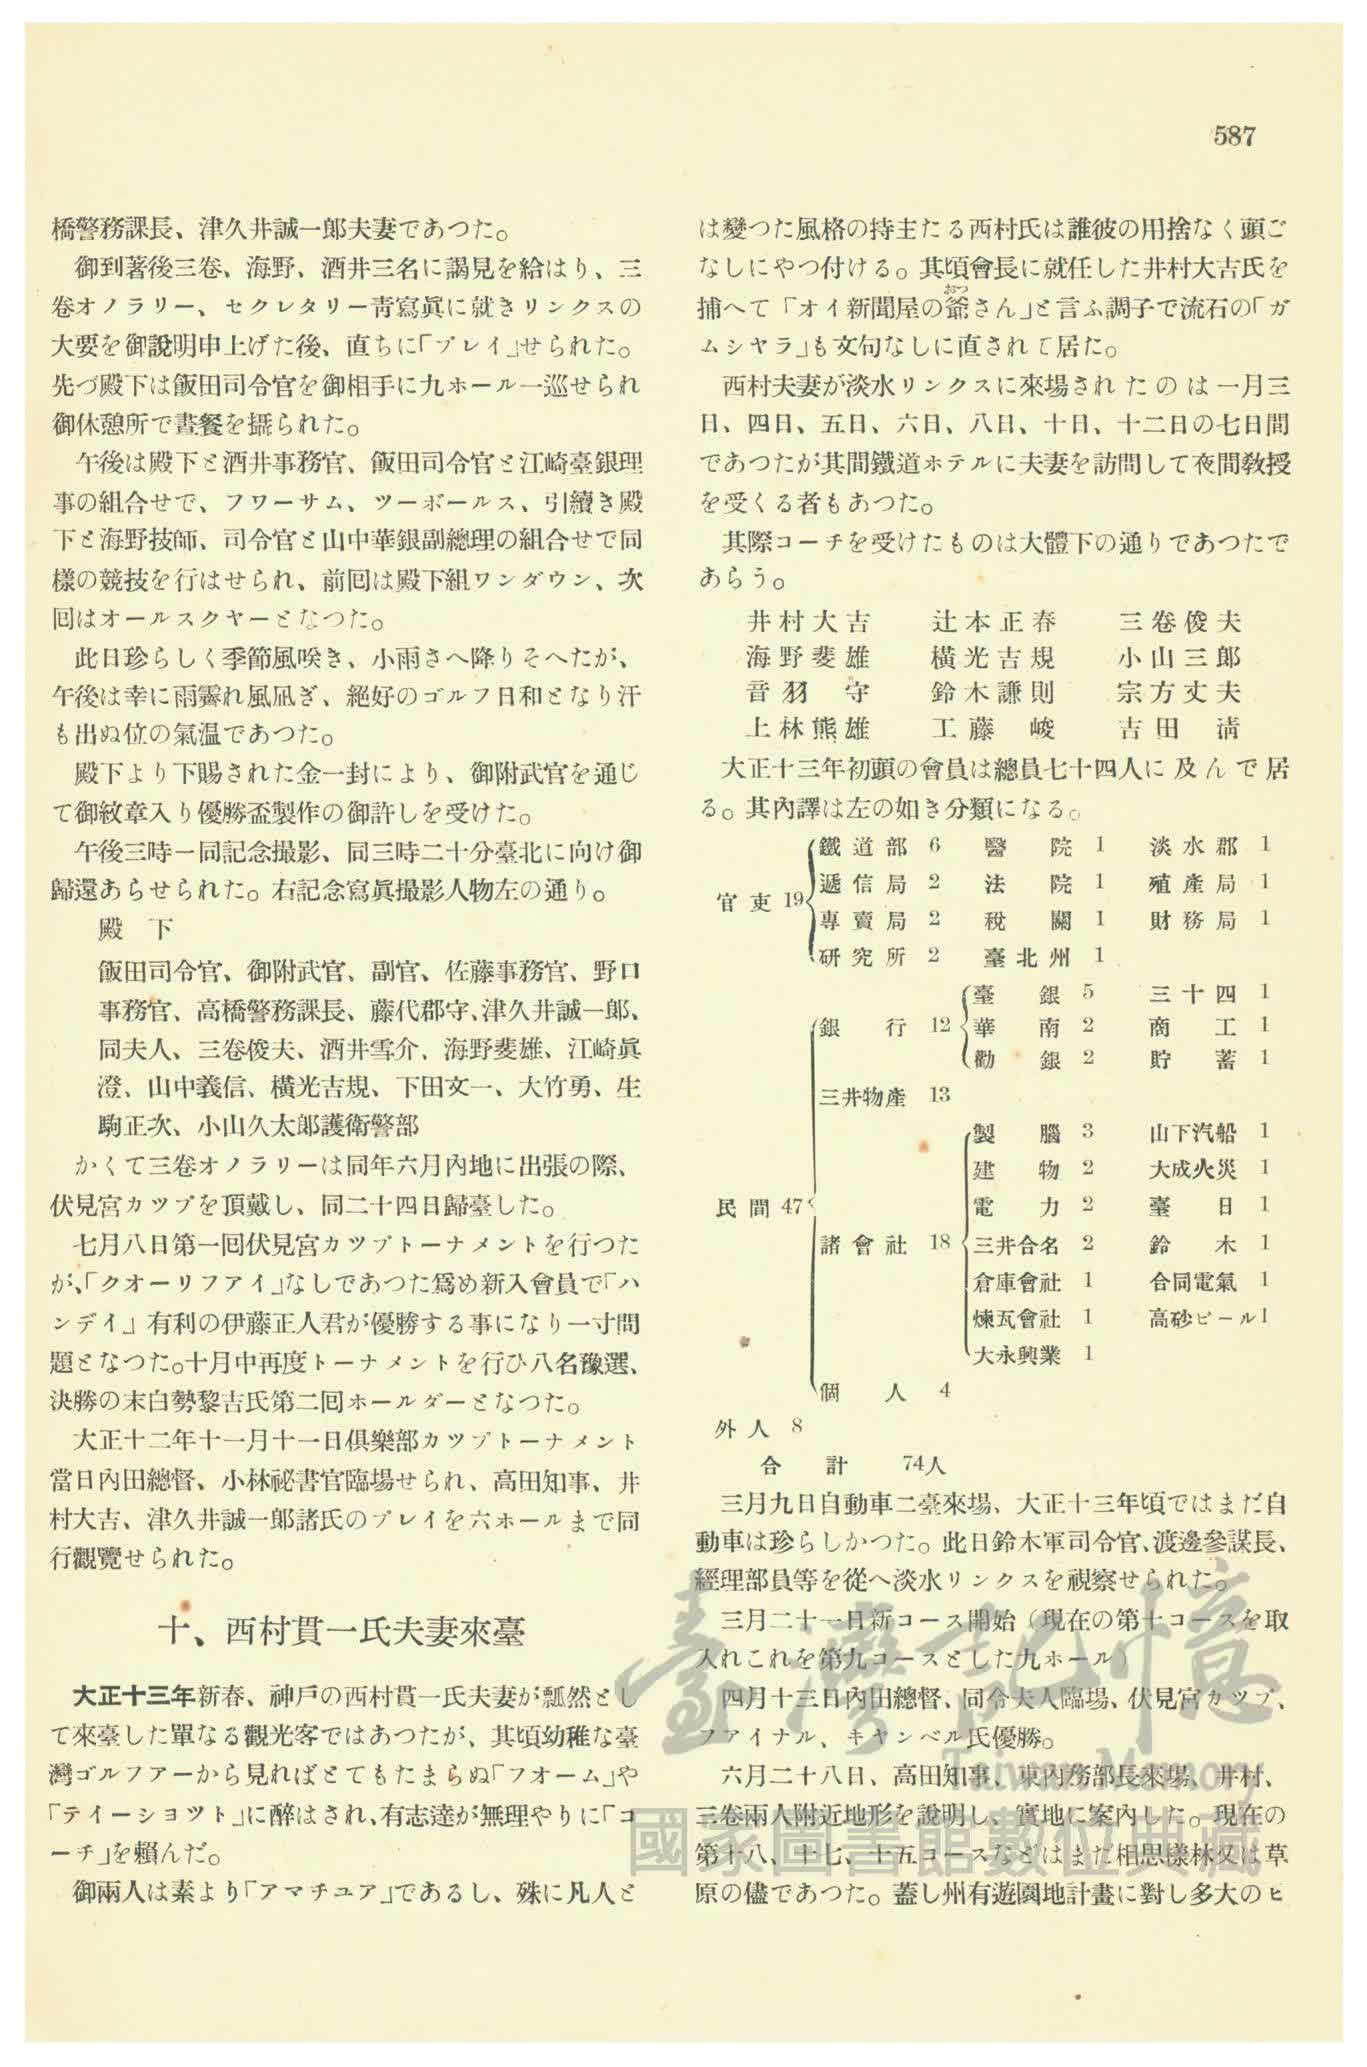 587
橋警務課長、津久井誠一郞夫妻であつた。
御到著後三卷、海野、酒井三名に謁見を給はり、三
卷オノラリー、セクレタリー靑寫眞に就きリンクスの
大要を御說明申上げた後、直ちに「プレイ」せられた。
先づ殿下は飯田司令官を御相手に九ホール一巡せられ
御休憩所で晝餐を攝られた。
午後は殿下と酒井事務官、飯田司令官と江崎臺銀理
事の組合せで、フワーサム、ツーボールス、引續き殿
下と海野技師、司令官と山中華銀副總理の組合せで同
樣の競技を行はせられ、前囘は殿下組ワンダウン、次
囘はオールスクヤーとなつた。
此日珍らしく季節風咲き、小雨さへ降りそへたが、
午後は幸に雨霽れ風凪ぎ、絕好のゴルフ日和となり汗
も出ぬ位の氣温であつた。
殿下より下賜された金一封により、御附武官を通じ
て御紋章入り優勝盃製作の御許しを受けた。
午後三時一同記念撮影、同三時二十分臺北に向け御
歸還あらせられた。右記念寫眞撮影人物左の通り。
殿　下
飯田司令官、御附武官、副官、佐藤事務官、野口
事務官、高橋警務課長、藤代郡守、津久井誠一郞、
同夫人、三卷俊夫、酒井雪介、海野斐雄、江崎眞
澄、山中義信、橫光吉規、下田文一、大竹勇、生
駒正次、小山久太郞護衛警部
かくて三卷オノラリーは同年六月內地に出張の際、
伏見宮カツプを頂戴し、同二十四日歸臺した。
七月八日第一囘伏見宮カツプトーナメントを行つた
が、「クオーリフアイ」なしであつた爲め新入會員で「ハ
ンデイ」有利の伊藤正人君が優勝する事になり一寸問
題となつた。十月中再度トーナメントを行ひ八名豫選、
決勝の末白勢黎吉氏第二囘ホールダーとなつた。
大正十二年十一月十一日俱樂部カツプトーナメント
當日內田總督、小林祕書官臨場せられ、高田知事、井
村大吉、津久井誠一郞諸氏のプレイを六ホールまで同
行觀覽せられた。
十、西村貫一氏夫妻來臺
大正十三年新春、神戶の西村貫一氏夫妻が瓢然とし
て來臺した單なる觀光客ではあつたが、其頃幼稚な臺
灣ゴルフアーから見ればとてもたまらぬ「フオーム」や
「テイーショツト」に醉はされ、有志達が無理やりに「コ
ーチ」を賴んだ。
御兩人は素より「アマチユア」であるし、殊に凡人と
は變つた風格の持主たる西村氏は誰彼の用捨なく頭ご
なしにやつ付ける。其頃會長に就任した井村大吉氏を
捕へて「オイ新聞屋の爺さん」と言ふ調子で流石の「ガ
ムシヤラ」も文句なしに直されて居た。
西村夫妻が淡水リンクスに來場されたのは一月三
日、四日、五日、六日、八日、十日、十二日の七日間
であつたが其間鐵道ホテルに夫妻を訪問して夜間敎授
を受くる者もあつた。
其際コーチを受けたものは大體下の通りであつたで
あらう。
井村大吉　辻本正春　三卷俊夫
海野斐雄　橫光吉規　小山三郞
音羽　守　鈴木謙則　宗方丈夫
上林熊雄　工藤　峻　吉田　淸
大正十三年初頭の會員は總員七十四人に及んで居
る。其內譯は左の如き分類になる。
官吏 19
鐵道部 6　醫院 1　淡水郡 1
遞信局 2　法院 1　殖產局 1
專賣局 2　稅關 1　財務局 1
硏究所 2　臺北州 1
民間 47
銀行 12
臺銀 5　三十四 1
華南 2　商工 1
勸銀 2　貯蓄 1
三井物產 13
諸會社 18
製腦 3　山下汽船 1
建物 2　大成火災 1
電力 2　臺日 1
三井合名 2　鈴木 1
倉庫會社 1　合同電氣 1
煉瓦會社 1　高砂ビール 1
大永興業 1
個人 4
外人 8
合計　74人
三月九日自動車二臺來場、大正十三年頃ではまだ自
動車は珍らしかつた。此日鈴木軍司令官、渡邊參謀長、
經理部員等を從へ淡水リンクスを視察せられた。
三月二十一日新コース開始（現在の第十コースを取
入れこれを第九コースとした九ホール）
四月十三日內田總督、同令夫人臨場、伏見宮カツプ、
フアイナル、キヤンベル氏優勝。
六月二十八日、高田知事、東內務部長來場、井村、
三卷兩人附近地形を說明し、實地に案內した。現在の
第十八、十七、十五コースなどはまだ相思樣林又は草
原の儘であつた。蓋し州有遊園地計畫に對し多大のヒ
臺灣記憶
Taiwan Memory
國家圖書館數位典藏